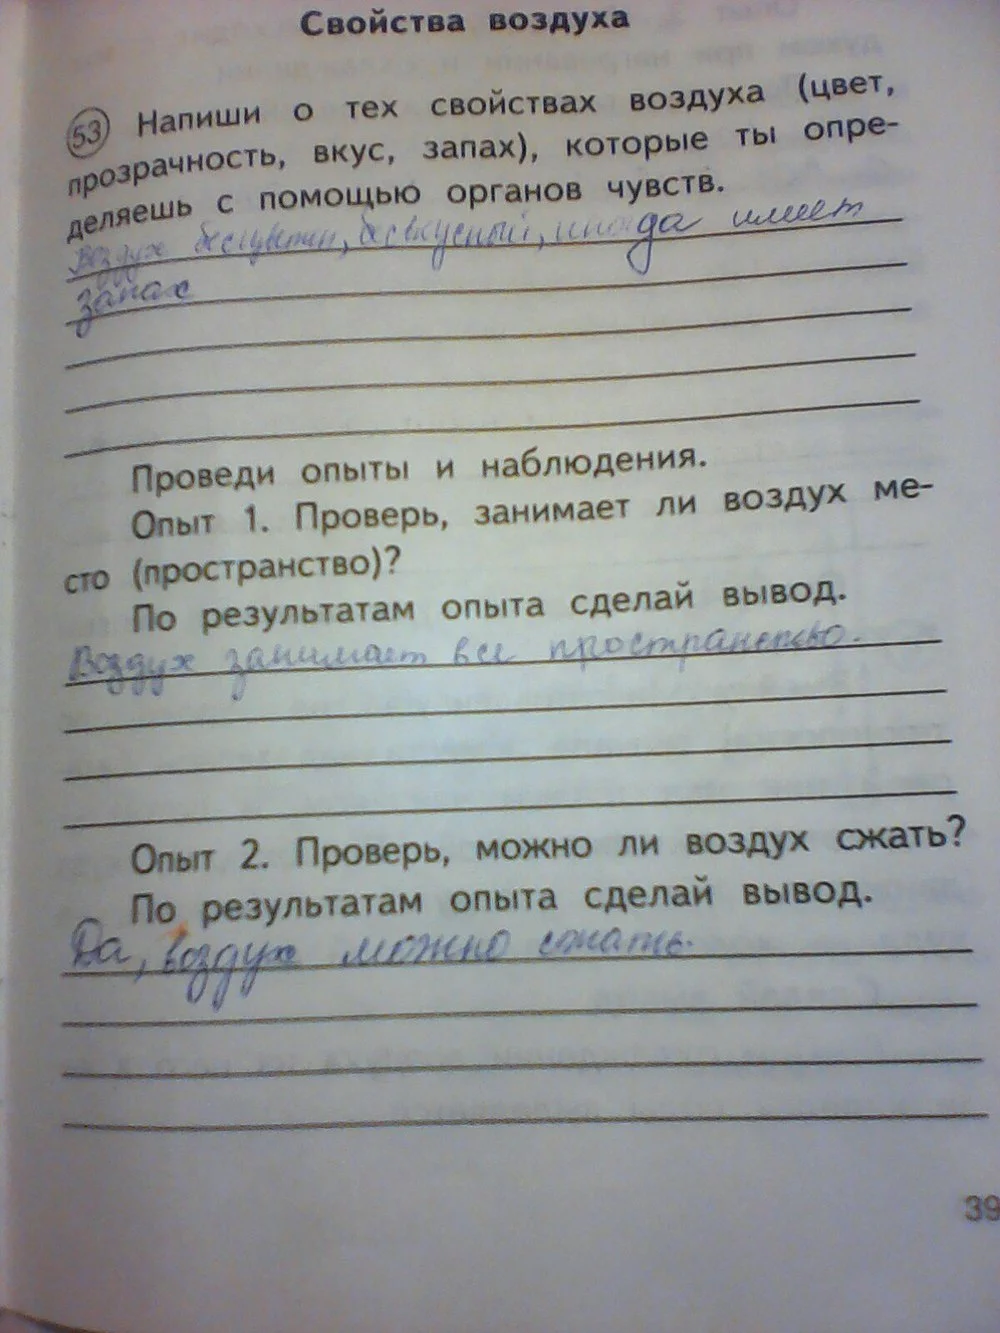 Свойства воздуха
53 Напиши о тех свойствах воздуха (цвет,
прозрачность, вкус, запах), которые ты опре-
деляешь с помощью органов чувств.
Воздух бесцветен, безвкусный, иногда имеет
запах
Проведи опыты и наблюдения.
Опыт 1. Проверь, занимает ли воздух ме-
сто (пространство)?
По результатам опыта сделай вывод.
Воздух занимает все пространство.
Опыт 2. Проверь, можно ли воздух сжать?
По результатам опыта сделай вывод.
Да, воздух можно сжать.
39